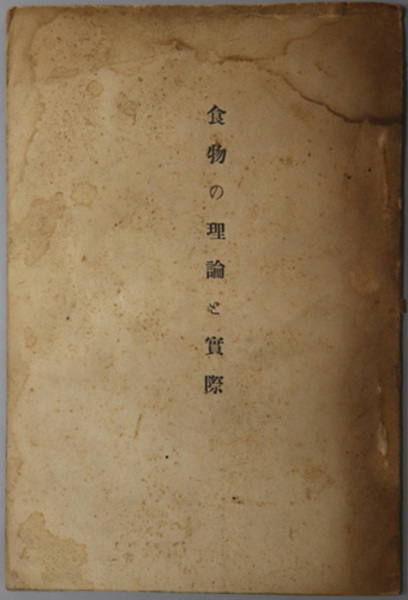 食物の理論と實際